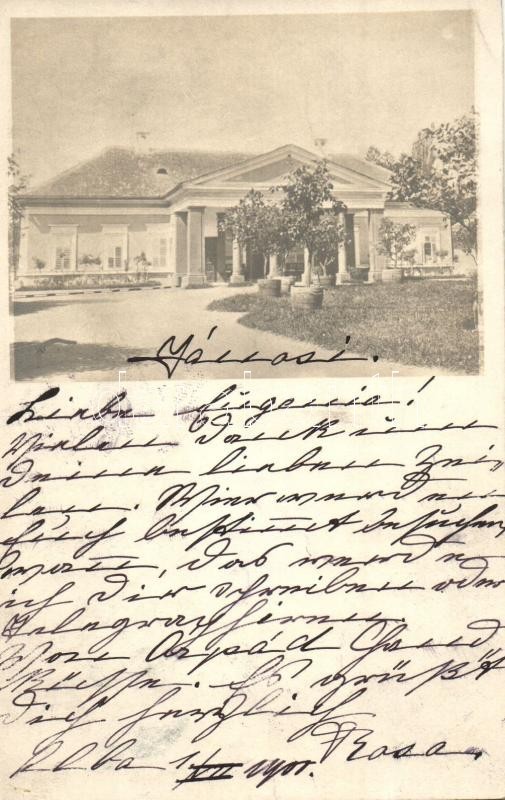 Jánosi.
Liebe Eugenia!
Vielen Dank um
deinen lieben Zei-
len. Wier werden
Euch bestimmt besuchen,
wann, das werde
ich dir schreiben oder
Telegrafiren.
Von Árpád Hand
Küsse. Es grüßt
dich herzlich
Rosa.
Alba 1/VII 1901.